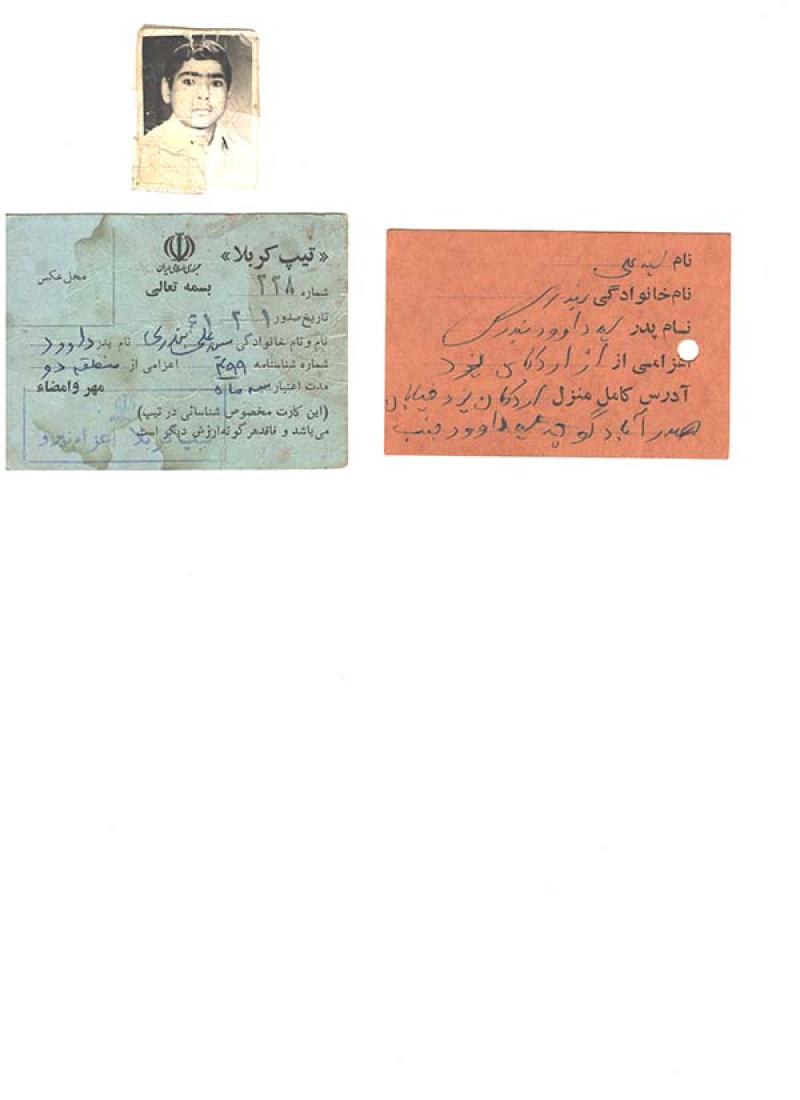 «تیپ کربلا»
جمهوری اسلامی ایران
محل عکس
بسمه تعالی
شماره ۲۲۸
تاریخ صدور ۱ ۲ ۶۱
نام و نام خانوادگی سید علی نام پدر داوود
شماره شناسنامه اعزامی از منطقه دو
مدت اعتبار سه ماه مهر و امضاء
(این کارت مخصوص شناسائی در تیپ
می‌باشد و فاقد هر گونه ارزش دیگر است)
تیپ کربلا اعزام نیرو
نام سید علی
نام خانوادگی
نام پدر سید داوود
اعزامی از از اردکان یزد
آدرس کامل منزل اردکان یزد خیابان
صدرآباد کوچه داوود جنب